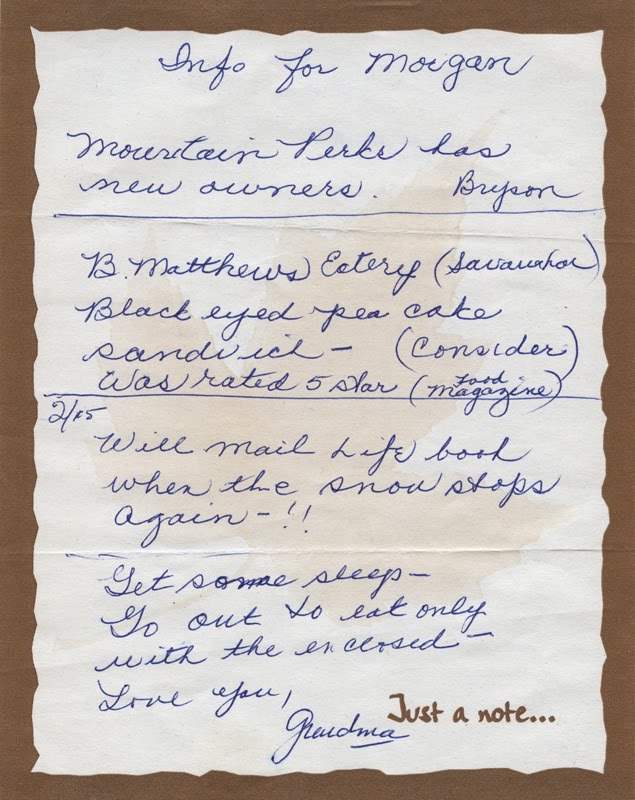 Info for Morgan
Mountain Perks has
new owners. Bryson
B. Matthews Eatery (Savannah)
Black eyed pea cake
sandwich - (Consider)
Was rated 5 star (Food Magazine)
2/15
Will mail Life book
when the snow stops
again - !!
Get some sleep -
Go out to eat only
with the enclosed -
Love you,
Grandma
Just a note...